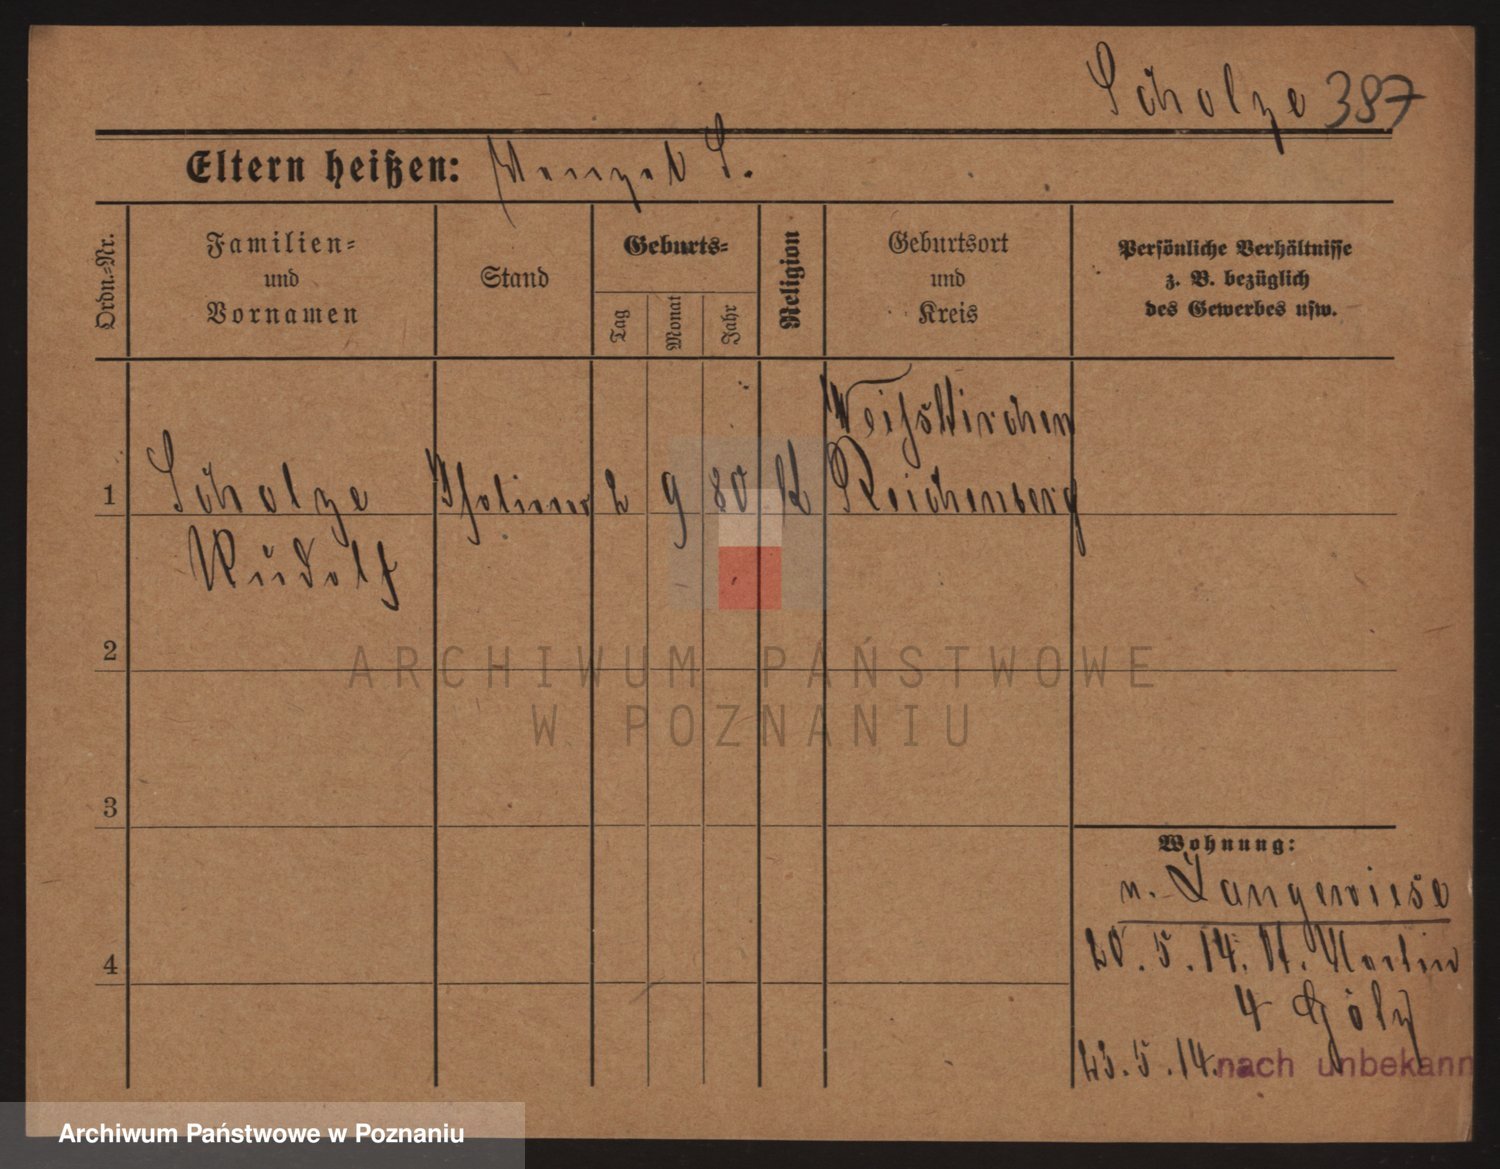 Scholze 387
Eltern heißen: Wenzel S.
Ordn.=Nr.
Familien=
und
Vornamen
Stand
Geburts=
Tag
Monat
Jahr
Religion
Geburtsort
und
Kreis
Persönliche Verhältnisse
z. B. bezüglich
des Gewerbes usw.
1 Scholze 2 9 80 K Weißkirchen
Reichenberg
Rudolf
2
3
4
Wohnung:
n. Langewiese
20. 5. 14. St. Martin
4 Gölz
23. 5. 14. nach unbekann
ARCHIWUM PAŃSTWOWE
W POZNANIU
Archiwum Państwowe w Poznaniu